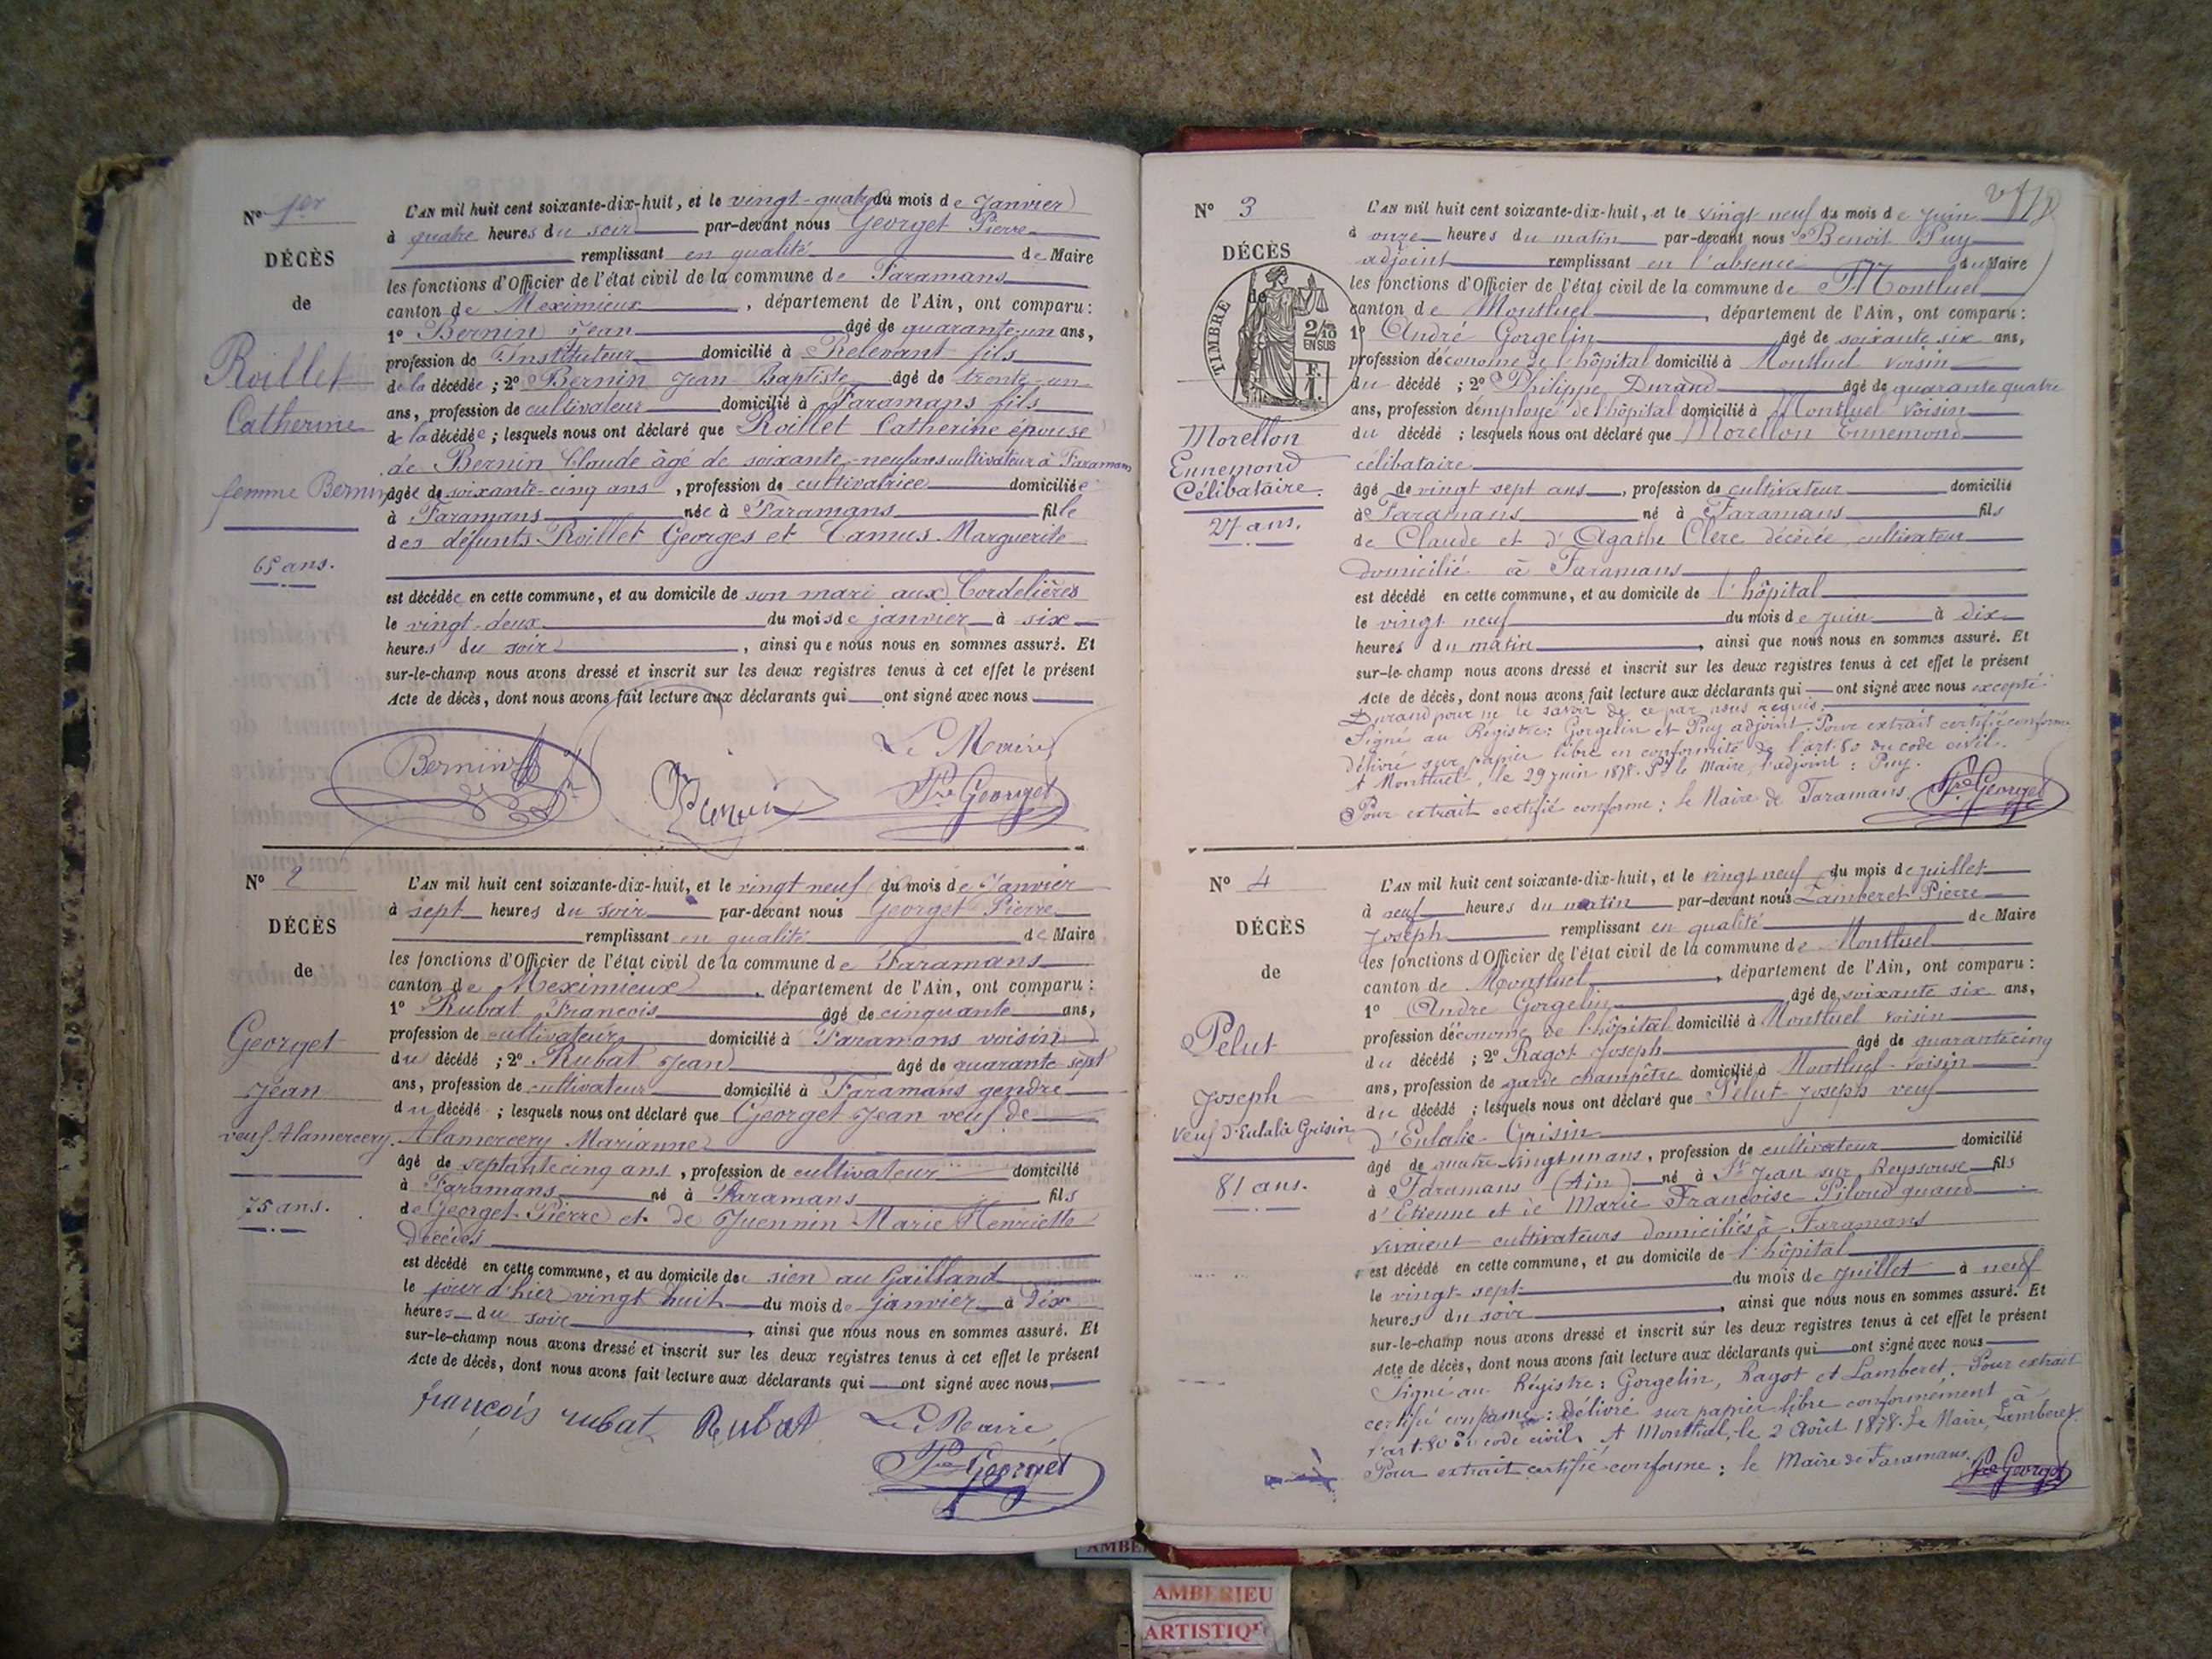 N° 1er
DÉCÈS
de
Roillet
Catherine
femme Bernin
65 ans.
L'AN mil huit cent soixante-dix-huit, et le vingt-quatre du mois de Janvier
à quatre heures du soir par-devant nous Georget Pierre
remplissant en qualité de Maire
les fonctions d'Officier de l'état civil de la commune de Faramans
canton de Meximieux, département de l'Ain, ont comparu:
1° Bernin Jean âgé de quarante-un ans,
profession de Instituteur domicilié à Relevant fils
de la décédée; 2° Bernin Jean Baptiste âgé de trente-un
ans, profession de cultivateur domicilié à Faramans fils
de la décédée; lesquels nous ont déclaré que Roillet Catherine épouse
de Bernin Claude âgé de soixante-neuf ans cultivateur à Faramans
âgée de soixante-cinq ans, profession de cultivatrice domiciliée
à Faramans née à Faramans fille
des défunts Roillet Georges et Camus Marguerite
est décédée en cette commune, et au domicile de son mari aux Cordelières
le vingt-deux du mois de janvier à six
heures du soir, ainsi que nous nous en sommes assuré. Et
sur-le-champ nous avons dressé et inscrit sur les deux registres tenus à cet effet le présent
Acte de décès, dont nous avons fait lecture aux déclarants qui ont signé avec nous
Le Maire
Bernin
Bernin
Pre Georget
N° 2
DÉCÈS
de
Georget
Jean
veuf Alamercery
75 ans.
L'AN mil huit cent soixante-dix-huit, et le vingt neuf du mois de Janvier
à sept heures du soir par-devant nous Georget Pierre
remplissant en qualité de Maire
les fonctions d'Officier de l'état civil de la commune de Faramans
canton de Meximieux, département de l'Ain, ont comparu:
1° Rubat François âgé de cinquante ans,
profession de cultivateur domicilié à Faramans voisin
du décédé; 2° Rubat Jean âgé de quarante sept
ans, profession de cultivateur domicilié à Faramans gendre
du décédé; lesquels nous ont déclaré que Georget Jean veuf de
Alamercery Marianne
âgé de septante cinq ans, profession de cultivateur domicilié
à Faramans né à Faramans fils
de Georget Pierre et de Juennin Marie Henriette
décédés
est décédé en cette commune, et au domicile de sien au Gailland
le jour d'hier vingt huit du mois de janvier à dix
heures du soir, ainsi que nous nous en sommes assuré. Et
sur-le-champ nous avons dressé et inscrit sur les deux registres tenus à cet effet le présent
Acte de décès, dont nous avons fait lecture aux déclarants qui ont signé avec nous
françois rubat Rubat Le Maire,
Pre Georget
N° 3
DÉCÈS
de
TIMBRE
2/10
EN SUS
F.
1.
Morellon
Ennemond
Célibataire.
27 ans.
L'AN mil huit cent soixante-dix-huit, et le vingt neuf du mois de juin
à onze heures du matin par-devant nous Benoit Puy
adjoint remplissant en l'absence du Maire
les fonctions d'Officier de l'état civil de la commune de Montluel
canton de Montluel, département de l'Ain, ont comparu:
1° André Gorgelin âgé de soixante six ans,
profession d'économe de l'hôpital domicilié à Montluel voisin
du décédé; 2° Philippe Durand âgé de quarante quatre
ans, profession d'employé de l'hôpital domicilié à Montluel voisin
du décédé; lesquels nous ont déclaré que Morellon Ennemond
célibataire
âgé de vingt sept ans, profession de cultivateur domicilié
à Faramans né à Faramans fils
de Claude et d'Agathe Clere décédée cultivateur
domicilié à Faramans
est décédé en cette commune, et au domicile de l'hôpital
le vingt neuf du mois de juin à dix
heures du matin, ainsi que nous nous en sommes assuré. Et
sur-le-champ nous avons dressé et inscrit sur les deux registres tenus à cet effet le présent
Acte de décès, dont nous avons fait lecture aux déclarants qui ont signé avec nous excepté
Durand pour ne le savoir de ce par nous requis.
Signé au Registre: Gorgelin et Puy adjoint Pour extrait certifié conforme
délivré sur papier libre en conformité de l'art. 80 du code civil.
A Montluel, le 29 juin 1878. Pr le Maire, l'adjoint: Puy.
Pour extrait certifié conforme: le Maire de Faramans, Pre Georget
N° 4
DÉCÈS
de
Pelut
Joseph
veuf d'Eulalie Grisin
81 ans.
L'AN mil huit cent soixante-dix-huit, et le vingt neuf du mois de juillet
à neuf heures du matin par-devant nous Lamberet Pierre
Joseph remplissant en qualité de Maire
les fonctions d'Officier de l'état civil de la commune de Montluel
canton de Montluel, département de l'Ain, ont comparu:
1° André Gorgelin âgé de soixante six ans,
profession d'économe de l'hôpital domicilié à Montluel voisin
du décédé; 2° Ragot Joseph âgé de quarante cinq
ans, profession de garde champêtre domicilié à Montluel voisin
du décédé; lesquels nous ont déclaré que Pelut Joseph veuf
d'Eulalie Grisin
âgé de quatre vingt un ans, profession de cultivateur domicilié
à Faramans (Ain) né à St Jean sur Reyssouse fils
d'Etienne et de Marie Françoise Piloud quand
vivaient cultivateurs domiciliés à Faramans
est décédé en cette commune, et au domicile de l'hôpital
le vingt-sept du mois de juillet à neuf
heures du soir, ainsi que nous nous en sommes assuré. Et
sur-le-champ nous avons dressé et inscrit sur les deux registres tenus à cet effet le présent
Acte de décès, dont nous avons fait lecture aux déclarants qui ont signé avec nous
Signé au Régistre: Gorgelin, Ragot et Lamberet. Pour extrait
certifié conforme: délivré sur papier libre conformément à
l'art. 80 du code civil. A Montluel, le 2 Août 1878. Le Maire, Lamberet
Pour extrait certifié conforme: le Maire de Faramans. Pre Georget
AMBERIEU
ARTISTIQUE